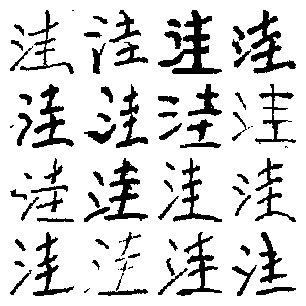 洼洼洼洼
洼洼洼洼
洼洼洼洼
洼洼洼洼